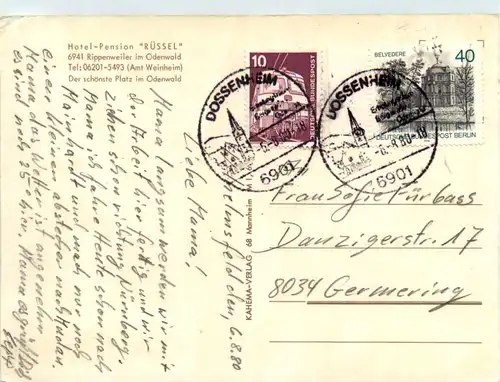 Hotel-Pension "RÜSSEL"
6941 Rippenweiler im Odenwald
Tel: 06201-5493 (Amt Weinheim)
Der schönste Platz im Odenwald
10
DEUTSCHE BUNDESPOST
BELVEDERE
40
DEUTSCHE BUNDESPOST BERLIN
DOSSENHEIM
-6.-8.80-18
6901
DOSSENHEIM
-6.-8.80-18
6901
KAHEMA-VERLAG 68 Mannheim
den, 6.8.80
Liebe Mama!
Mama langsam werden wir mit
der Arbeit hier fertig und wir
ziehen schon richtung Nürnberg.
Mama ich fahre Heute schon nach
Mainhardt und mach nur noch
einen kleinen abstecher nach
Mama das Wetter ist angenehm
es sind noch 25
Frau Sofie Fürbass
Danzigerstr. 17
8034 Germering